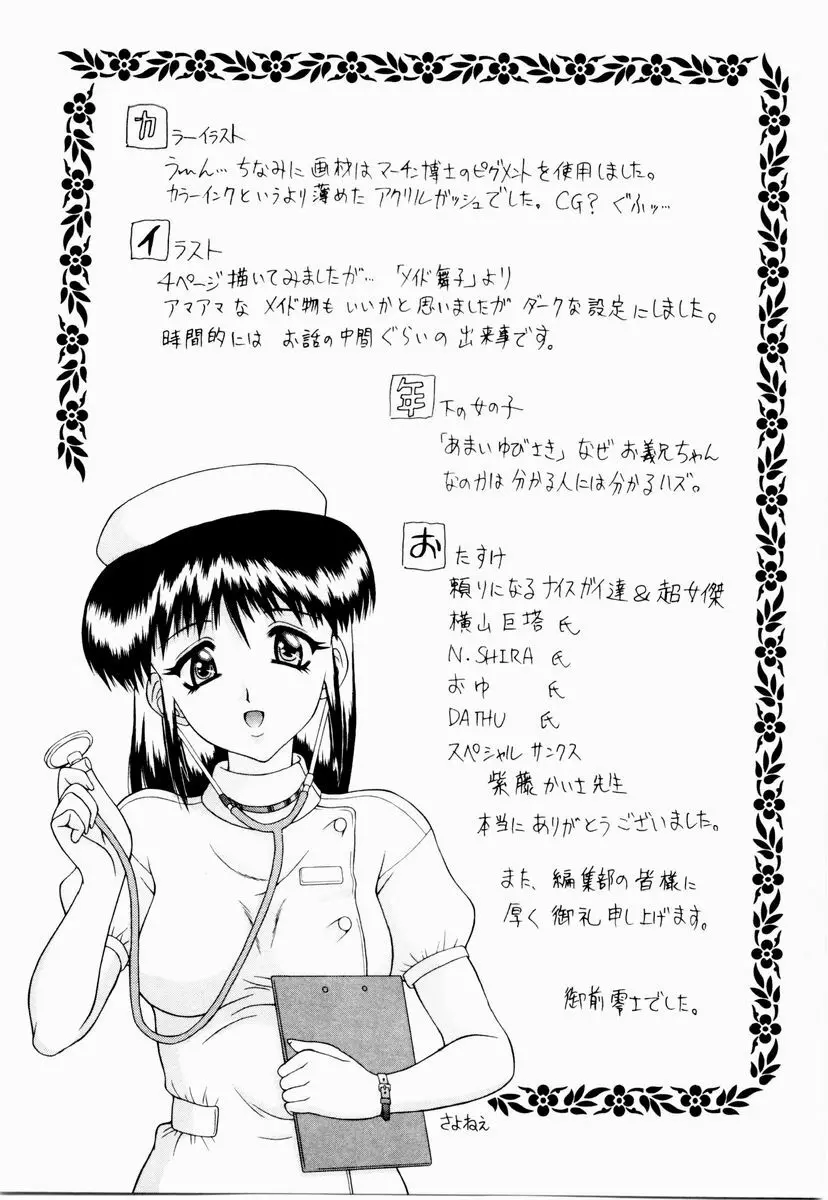 カラーイラスト
う〜ん…ちなみに画材はマーチン博士のピグメントを使用しました。
カラーインクというより薄めたアクリルガッシュでした。CG? ぐふッ…
イラスト
4ページ描いてみましたが…「メイド舞子」より
アマアマなメイド物もいいかと思いましたがダークな設定にしました。
時間的にはお話の中間ぐらいの出来事です。
年下の女の子
「あまいゆびさき」なぜお義兄ちゃん
なのかは分かる人には分かるハズ。
おたすけ
頼りになるナイスガイ達&超女傑
横山巨塔氏
N.SHIRA氏
おゆ 氏
DATHU 氏
スペシャルサンクス
紫藤かいさ先生
本当にありがとうございました。
また、編集部の皆様に
厚く御礼申し上げます。
御前零士でした。
さよねえ